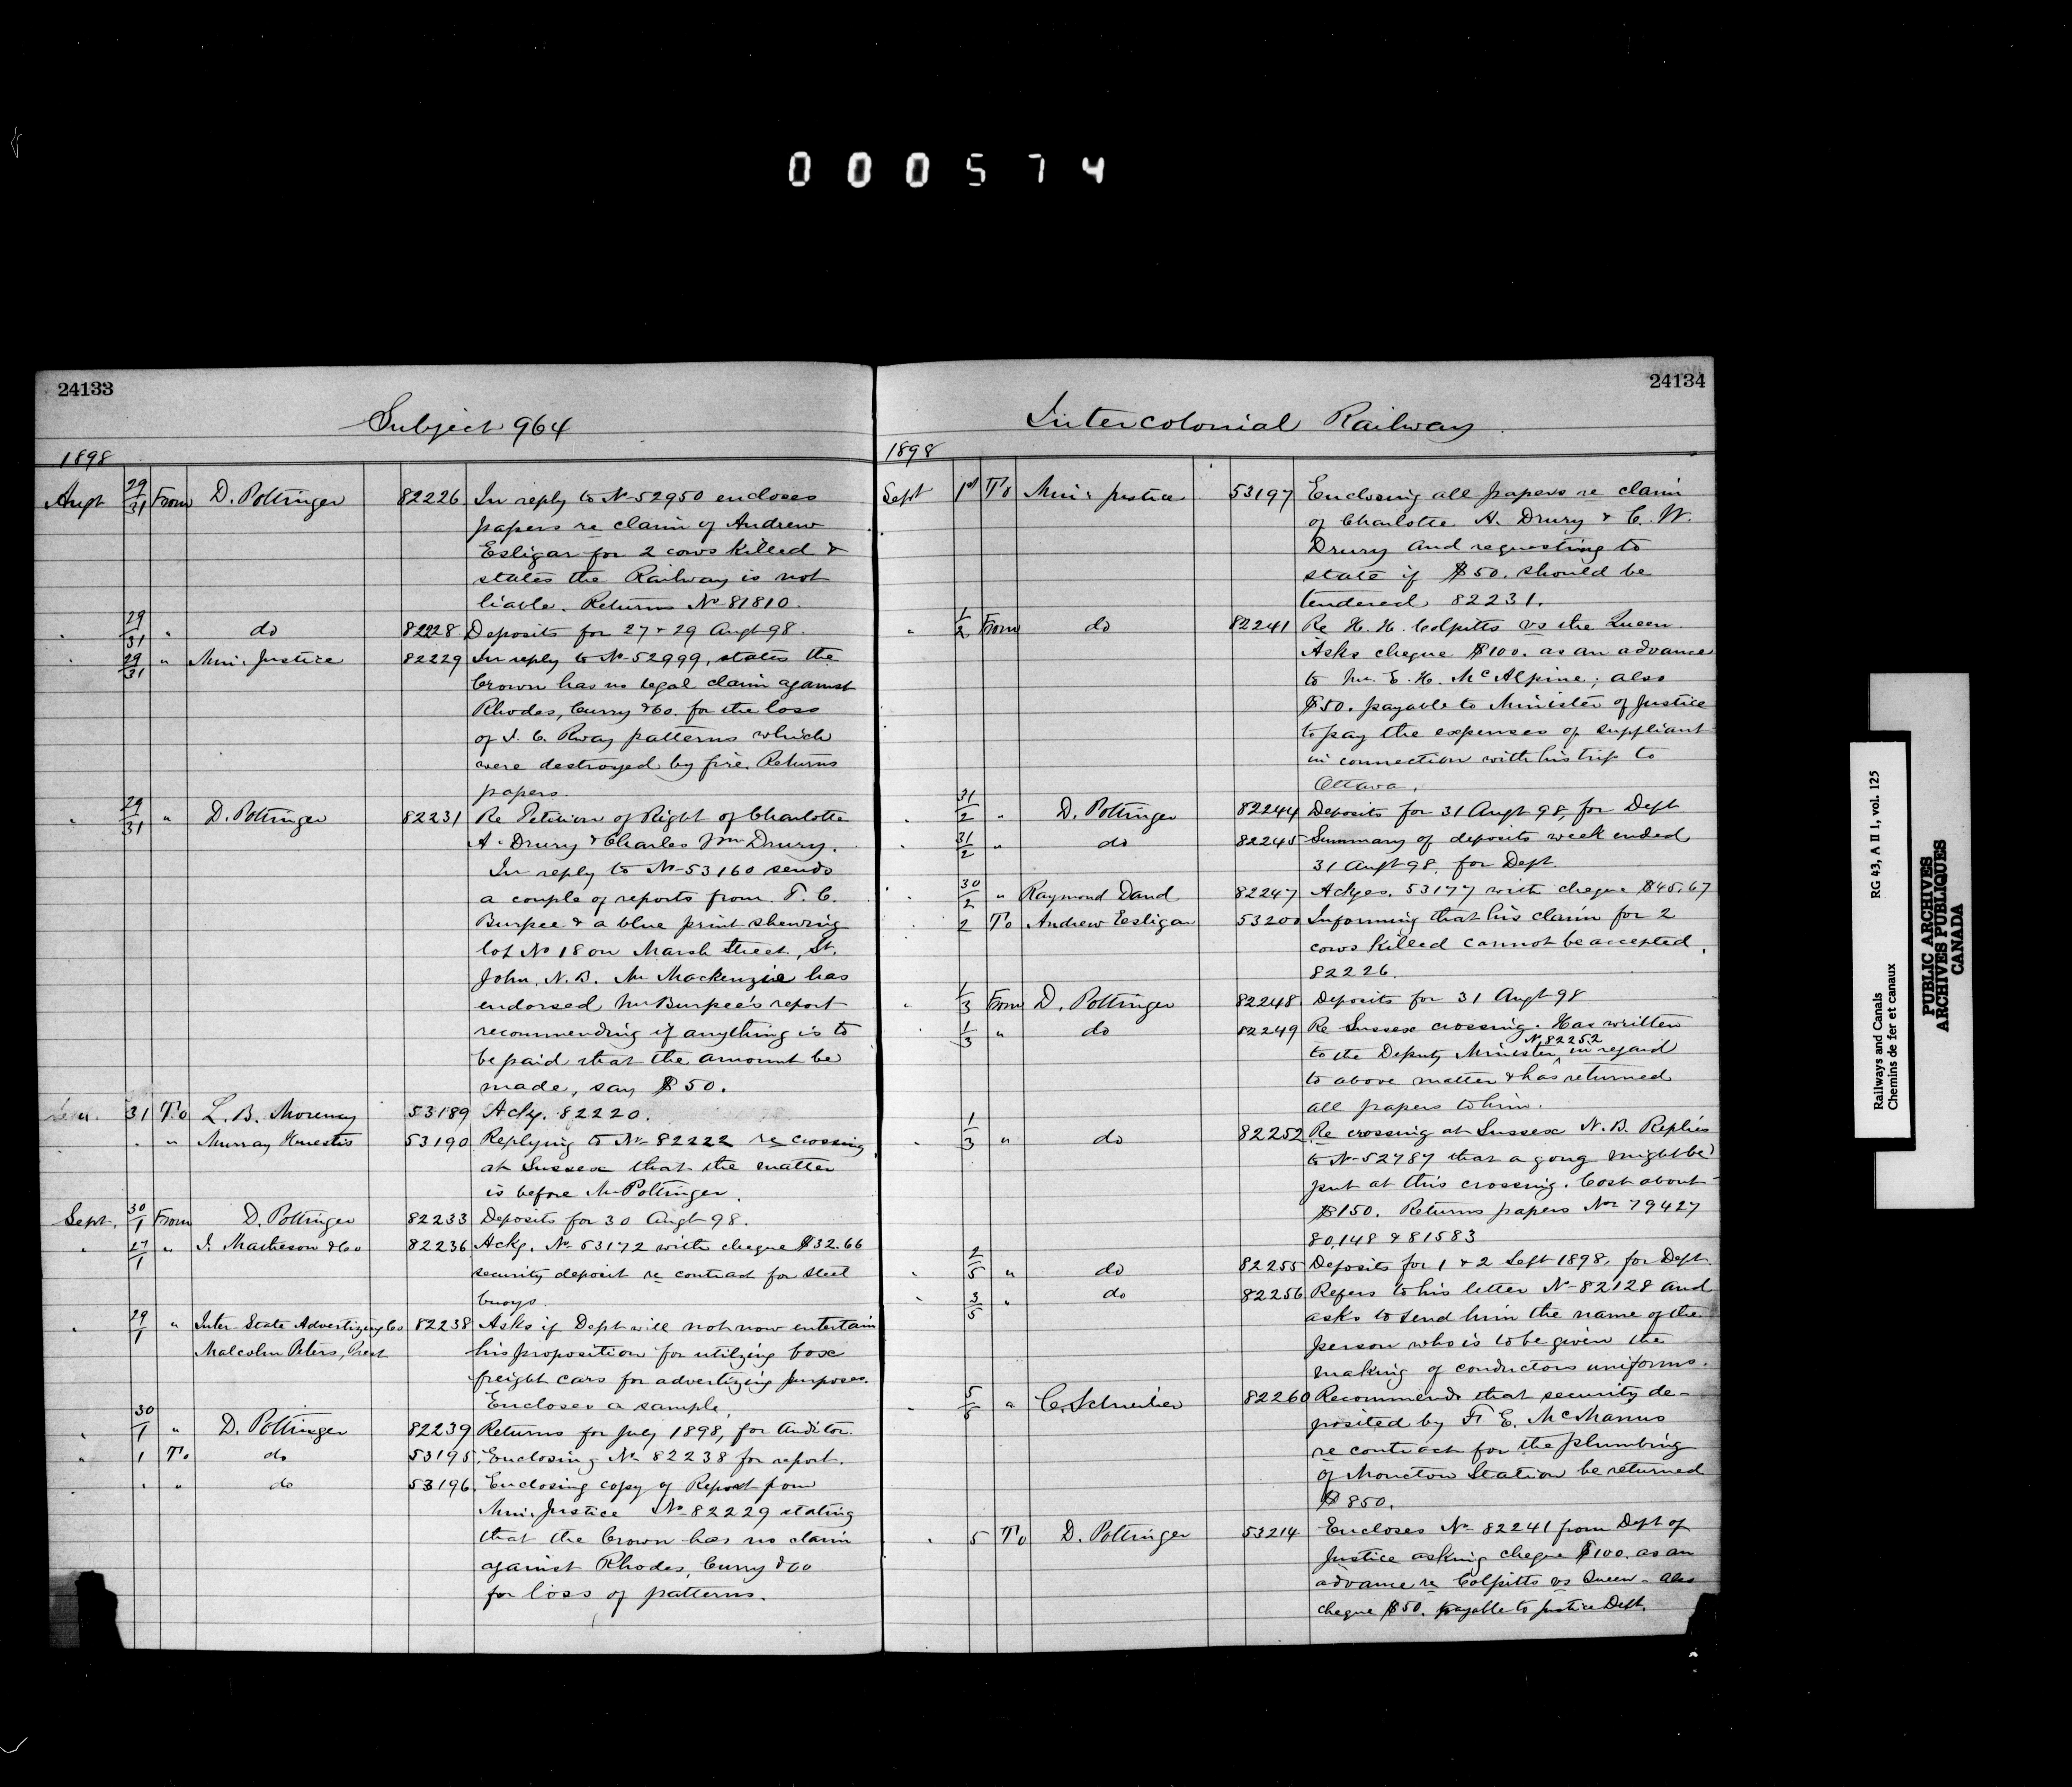 000574
24133
Subject 964
1898
Augt 29/31 From D. Pottinger 82226 In reply to No 52950 encloses
papers re claim of Andrew
Esligar for 2 cows killed &
states the Railway is not
liable. Returns No 81810.
" 29/31 " do 82228 Deposits for 27 & 29 Augt 98.
" 29/31 " Min. Justice 82229 In reply to No 52999, states the
Crown has no legal claim against
Rhodes, Curry & Co. for the loss
of I. C. Rway patterns which
were destroyed by fire. Returns
papers.
" 29/31 " D. Pottinger 82231 Re Petition of Right of Charlotte
A. Drury & Charles Wm Drury.
In reply to No 53160 sends
a couple of reports from T. C.
Burpee & a blue print shewing
lot No 18 on Marsh Street, St.
John, N.B. Mr Mackenzie has
endorsed Mr Burpee's report
recommending if anything is to
be paid that the amount be
made, say $50.
31 To L. B. Morency 53189 Ackg. 82220.
" " Murray Huestis 53190 Replying to No 82222 re crossing
at Sussex that the matter
is before Mr Pottinger.
Sept. 30/1 From D. Pottinger 82233 Deposits for 30 Augt 98.
" 27/1 " I. Matheson & Co 82236 Ackg. No 53172 with cheque $32.66
security deposit re contract for steel
buoys.
" 29/1 " Inter-State Advertizing Co 82238 Asks if Dept will not now entertain
Malcolm Peters, Prest his proposition for utilizing box
freight cars for advertizing purposes.
Encloses a sample.
" 30/1 " D. Pottinger 82239 Returns for July 1898, for Auditor.
" 1 To do 53195 Enclosing No 82238 for report.
" " do 53196 Enclosing copy of Report from
Min. Justice No 82229 stating
that the Crown has no claim
against Rhodes, Curry & Co
for loss of patterns.
24134
Intercolonial Railway
1898
Sept 1st To Min. Justice 53197 Enclosing all papers re claim
of Charlotte A. Drury & C. W.
Drury and requesting to
state if $50. should be
tendered 82231.
" 1/2 From do 82241 Re H. H. Colpitts vs the Queen.
Asks cheque $100. as an advance
to Mr. E. H. McAlpine; also
$50. payable to Minister of Justice
to pay the expenses of suppliant
in connection with his trip to
Ottawa.
" 31/2 " D. Pottinger 82244 Deposits for 31 Augt 98, for Dept
" 31/2 " do 82245 Summary of deposits week ended
31 Augt 98, for Dept.
" 30/2 " Raymond Daud 82247 Ackges. 53177 with cheque $45.67
" 2 To Andrew Esligar 53200 Informing that his claim for 2
cows killed cannot be accepted.
82226.
" 1/3 From D. Pottinger 82248 Deposits for 31 Augt 98
1/3 " do 82249 Re Sussex crossing. Has written
No 82252
to the Deputy Minister ^ in regard
to above matter & has returned
all papers to him.
" 1/3 " do 82252 Re crossing at Sussex N.B. Replies
to No 52787 that a gong might be
put at this crossing. Cost about
$150. Returns papers Nos 79427
80,148 & 81583
" 2/5 " do 82255 Deposits for 1 & 2 Sept 1898, for Dept.
" 3/5 " do 82256 Refers to his letter No 82128 and
asks to send him the name of the
person who is to be given the
making of conductors uniforms.
" 5/5 " C. Schreiber 82260 Recommends that security de-
posited by F. E. McManus
re contract for the plumbing
of Moncton Station be returned
$850.
" 5 To D. Pottinger 53214 Encloses No 82241 from Dept of
Justice asking cheque $100. as an
advance re Colpitts vs Queen - also
cheque $50. payable to Justice Dept.
Railways and Canals
Chemins de fer et canaux
RG 43, A II 1, vol. 125
PUBLIC ARCHIVES
ARCHIVES PUBLIQUES
CANADA